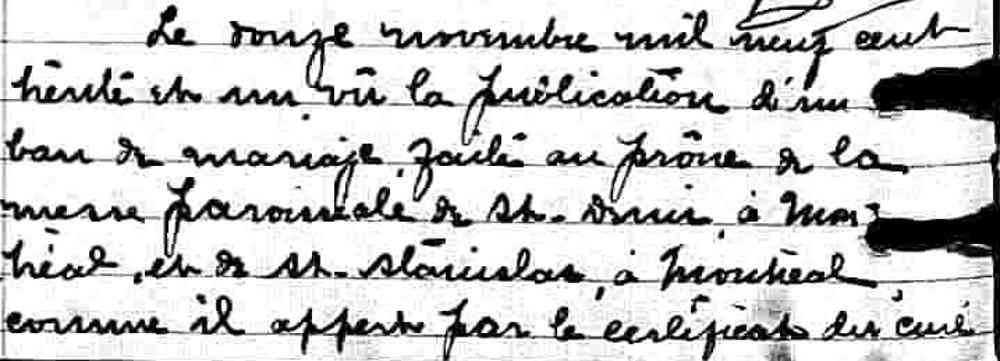 Le douze novembre mil neuf cent
trente et un vû la publication d'un
ban de mariage, faite au prône de la
messe paroissiale de St. Denis, à Mon-
tréal, et de St. Stanislas, à Montréal,
comme il appert par le certificat du curé